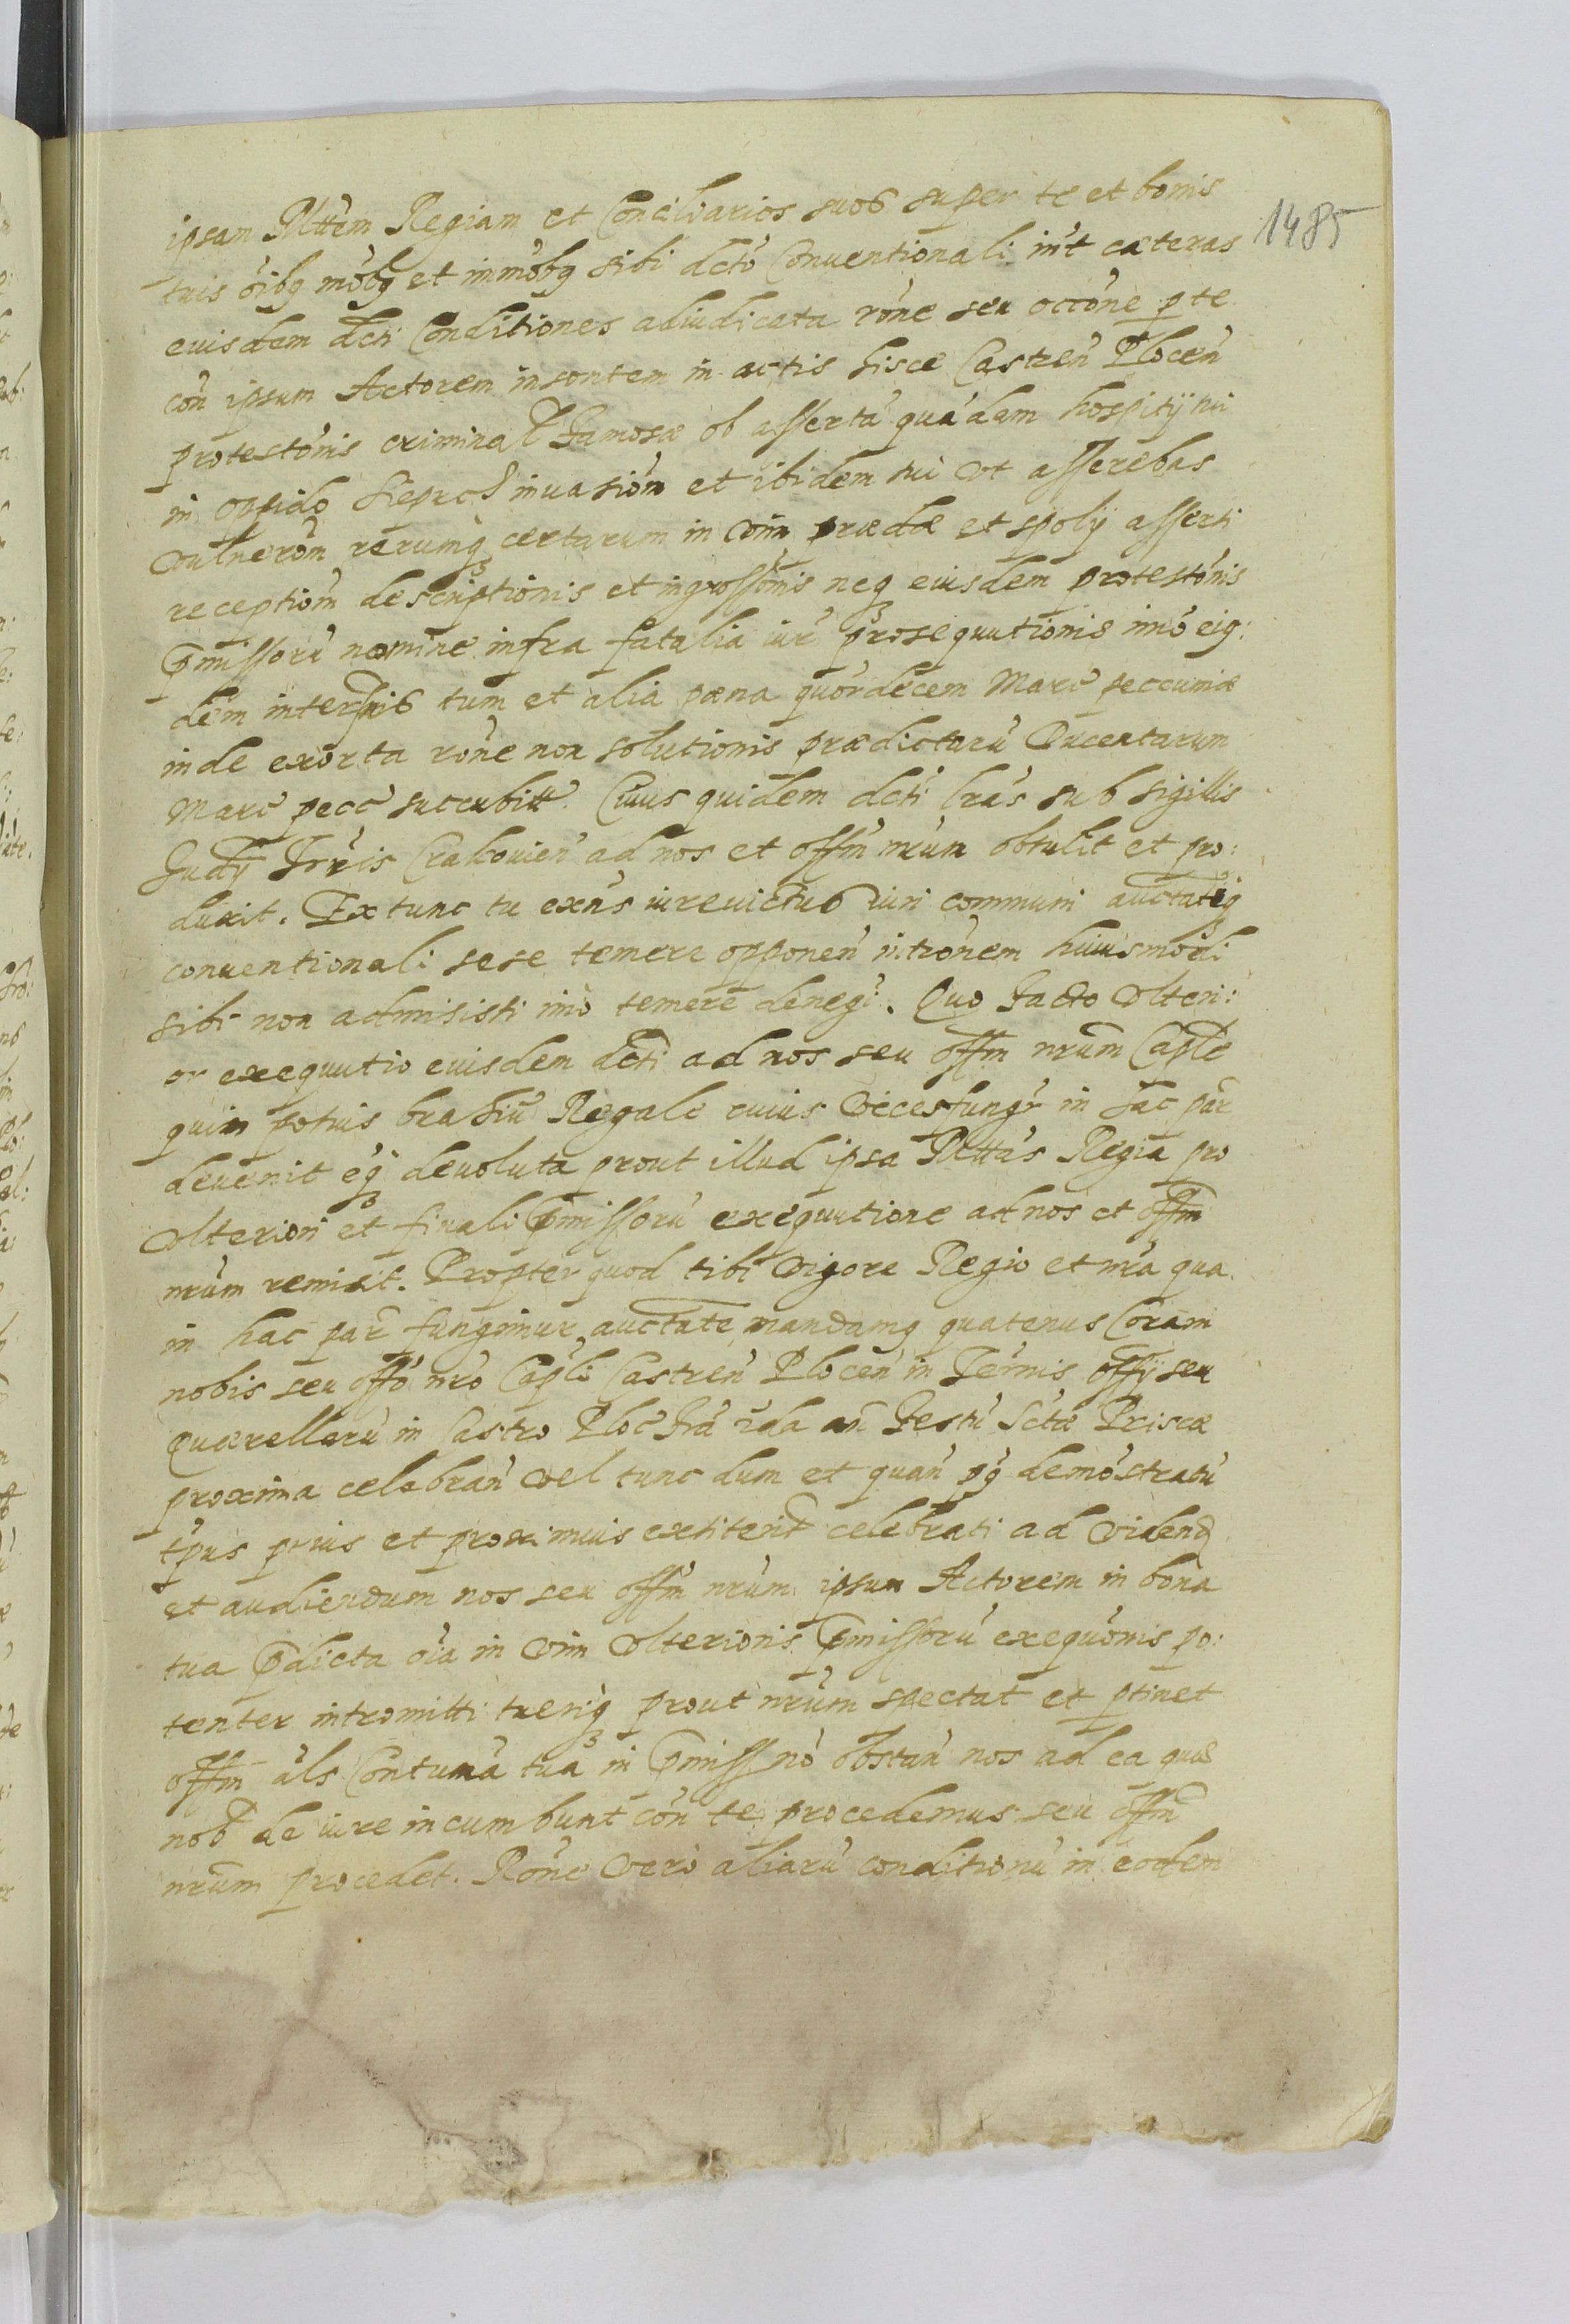 1485
ipsam Mttem Regiam et Conciliarios suos super te et bonis
tuis oibq mobq et immobq sibi dcto Conuentionali int cæteras
euisdem dcti Conditiones adiudicata rone seu occone p te
con ipsum Actorem insontem in actis hisce Castren Plocen
protestonis criminal famosæ ob asserta quadam hospitij tui
in oppido Sieprc inuasiom et ibidem tui vt asserebas
vulnerom rerumq certarum in vim prædæ et spolij asserti
receptiom descriptionis et ingrossonis neq eiusdem protestonis
pmissoru nomine infra fatalia iur prosequutionis imo eig:
dem tum et alia pæna quordecem Marc peccuniæ
inde exorta rone non solutionis prædictaru Ducentarum
Marc pecc succubitt. Cuius quidem dcti lras sub sigillis
Judij Trris Crakouien ad nos et offm nrum obtulit et pro:
duxit. Ex tunc tu exns iureuictus iuri communi auctateq
conuentionali sese temere opponen intronem huiusmodi
sibi non admisisti imo temere denegi. Quo facto vlteri:
or exequutio euisdem dcti ad nos seu offm nrum Caple
quin potuis brahiu Regale cuius vices fungr in hac par
deuenit eq deuoluta prout illud ipsa Mttas Regia pro
vlteriori et finali pmissoru exequutione ad nos et offm
nrum remisit. Propter quod tibi vigore Regio et nra qua
in hac par fungimur auctate mandamq quatenus Coram
nobis seu offo nro Capli Castren Plocen in Termis offij seu
Quærellaru in Castro Ploc fra 2da an Festu Sctæ Priscæ
proxima celebran vel tunc dum et quan pq demostratu
tpus prius et proximius extiterit celebrati ad vidend
et audiendum nos seu offm nrum ipsum Actorem in bona
tua pdicta oia in vim vlterioris pmissoru exequonis po:
tenter intromitti tueriq prout nrum spectat et ptinet
offm als Contuma tua in pmiss no obstan nos ad ea quæ
nob de iure incumbunt con te procedemus seu offm
nrum procedet. Rone vero aliaru conditionu in eodem